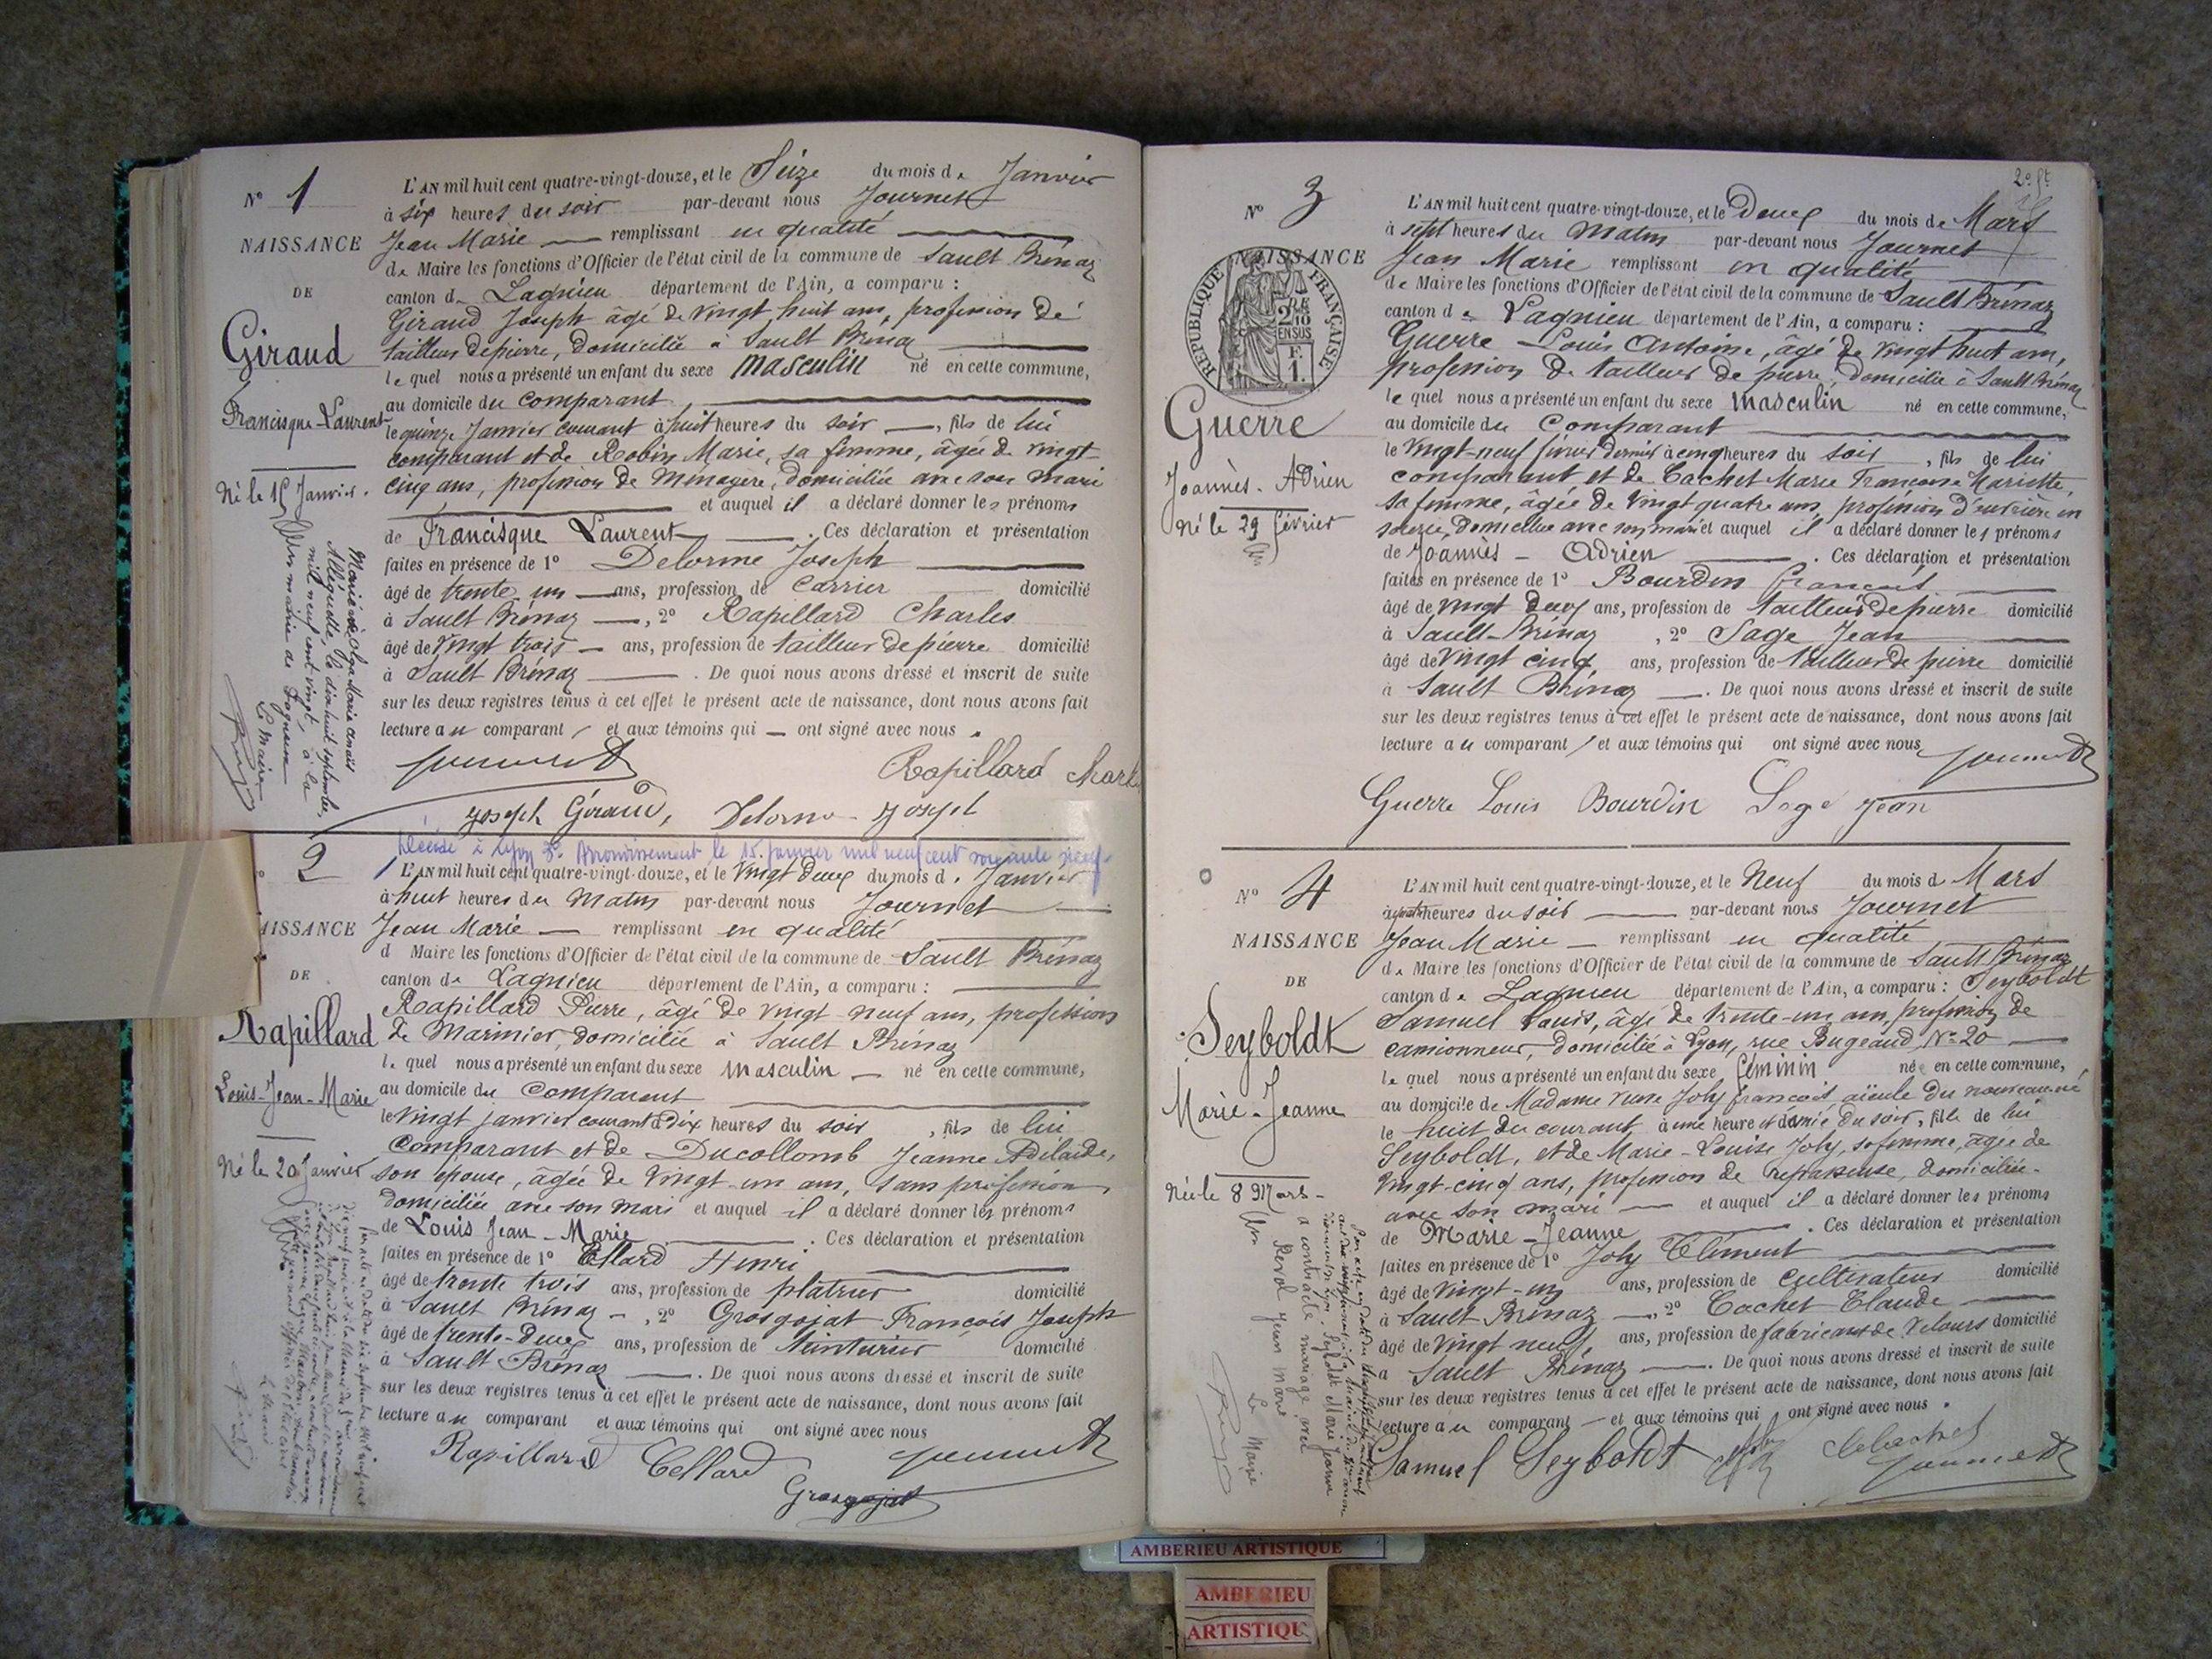 N° 1
NAISSANCE
DE
Giraud
Francisque-Laurent
Né le 15 Janvier.
L'AN mil huit cent quatre-vingt-douze, et le Seize du mois de Janvier
à six heures du soir par-devant nous Journet
Jean Marie remplissant en qualité
de Maire les fonctions d'Officier de l'état civil de la commune de Sault Brénaz
canton de Lagnieu département de l'Ain, a comparu :
Giraud Joseph âgé de vingt huit ans, profession de
tailleur de pierre, domicilié à Sault Brénaz
le quel nous a présenté un enfant du sexe masculin né en cette commune,
au domicile du comparant
le quinze Janvier courant à huit heures du soir, fils de lui
comparant et de Robin Marie, sa femme, âgée de vingt
cinq ans, profession de Ménagère, domiciliée avec son mari
et auquel il a déclaré donner les prénoms
de Francisque Laurent . Ces déclaration et présentation
faites en présence de 1° Delorme Joseph
âgé de trente un ans, profession de Carrier domicilié
à Sault Brénaz , 2° Rapillard Charles
âgé de vingt trois ans, profession de tailleur de pierre domicilié
à Sault Brénaz . De quoi nous avons dressé et inscrit de suite
sur les deux registres tenus à cet effet le présent acte de naissance, dont nous avons fait
lecture au comparant et aux témoins qui ont signé avec nous.
Journet Rapillard Charles
Joseph Giraud, Delorme Joseph
Marie Olga Marie
le dix huit septembre
mil neuf cent vingt, à la
mairie de
Le Maire
2
AISSANCE
DE
Rapillard
Louis-Jean-Marie
Né le 20 Janvier
Décédé à Lyon 3e Arrondissement le 15 janvier mil neuf cent soixante
L'AN mil huit cent quatre-vingt-douze, et le vingt deux du mois d. Janvier
à huit heures du matin par-devant nous Journet
Jean Marie remplissant en qualité
d Maire les fonctions d'Officier de l'état civil de la commune de Sault Brénaz
canton de Lagnieu département de l'Ain, a comparu :
Rapillard Pierre, âgé de vingt neuf ans, profession
de Marinier, domicilié à Sault Brénaz
le quel nous a présenté un enfant du sexe masculin né en cette commune,
au domicile du comparant
le vingt janvier courant à dix heures du soir, fils de lui
Comparant et de Ducollomb Jeanne Adélaïde,
son épouse, âgée de vingt un ans, sans profession
domiciliée avec son mari et auquel il a déclaré donner les prénoms
de Louis Jean-Marie . Ces déclaration et présentation
faites en présence de 1° Tellard Henri
âgé de trente trois ans, profession de platrier domicilié
à Sault Brénaz , 2° Grosgojat François Joseph
âgé de trente-deux ans, profession de teinturier domicilié
à Sault Brénaz . De quoi nous avons dressé et inscrit de suite
sur les deux registres tenus à cet effet le présent acte de naissance, dont nous avons fait
lecture au comparant et aux témoins qui ont signé avec nous
Rapillard Tellard Journet
Grosgojat
N° 3
NAISSANCE
RÉPUBLIQUE FRANÇAISE
2/10 EN SUS
F. 1.
Guerre
Joannès-Adrien
Né le 29 février
L'AN mil huit cent quatre-vingt-douze, et le deux du mois de Mars
à sept heures du matin par-devant nous Journet
Jean Marie remplissant en qualité
de Maire les fonctions d'Officier de l'état civil de la commune de Sault Brénaz
canton de Lagnieu département de l'Ain, a comparu :
Guerre Louis Antoine, âgé de vingt huit ans,
profession de tailleur de pierre, domicilié à Sault Brénaz
le quel nous a présenté un enfant du sexe masculin né en cette commune,
au domicile du Comparant
le vingt-neuf février dernier à cinq heures du soir, fils de lui
comparant et de Cachet Marie Françoise Mariette,
sa femme, âgée de vingt quatre ans, profession d'ouvrière en
soierie, domiciliée avec son mari et auquel il a déclaré donner les prénoms
de Joannès-Adrien . Ces déclaration et présentation
faites en présence de 1° Bourdin François
âgé de vingt deux ans, profession de tailleur de pierre domicilié
à Sault-Brénaz , 2° Sage Jean
âgé de vingt cinq ans, profession de tailleur de pierre domicilié
à Sault Brénaz . De quoi nous avons dressé et inscrit de suite
sur les deux registres tenus à cet effet le présent acte de naissance, dont nous avons fait
lecture au comparant et aux témoins qui ont signé avec nous
Journet
Guerre Louis Bourdin Sage Jean
N° 4
NAISSANCE
DE
Seyboldt
Marie-Jeanne
Née le 8 Mars
L'AN mil huit cent quatre-vingt-douze, et le Neuf du mois d Mars
heures du soir par-devant nous Journet
Jean Marie remplissant en qualité
de Maire les fonctions d'Officier de l'état civil de la commune de Sault Brénaz
canton de Lagnieu département de l'Ain, a comparu : Seyboldt
Samuel Louis, âgé de trente-un ans, profession de
camionneur, domicilié à Lyon, rue Bugeaud, N° 20
le quel nous a présenté un enfant du sexe féminin née en cette commune,
au domicile de Madame veuve Joly François aïeule du nouveau-né
le huit du courant à une heure et demie du soir, fille de lui
Seyboldt, et de Marie-Louise Joly, sa femme, âgée de
vingt-cinq ans, profession de repasseuse, domiciliée
avec son mari et auquel il a déclaré donner les prénoms
de Marie-Jeanne . Ces déclaration et présentation
faites en présence de 1° Joly Clément
âgé de vingt-un ans, profession de cultivateur domicilié
à Sault Brénaz , 2° Cachet Claude
âgé de vingt neuf ans, profession de fabricant de velours domicilié
à Sault Brénaz . De quoi nous avons dressé et inscrit de suite
sur les deux registres tenus à cet effet le présent acte de naissance, dont nous avons fait
lecture au comparant et aux témoins qui ont signé avec nous.
Samuel Seyboldt Journet
Seyboldt Marie Jeanne
a contracté mariage avec
Revol Jean Marie
Le Maire
AMBERIEU ARTISTIQUE
AMBERIEU
ARTISTIQU